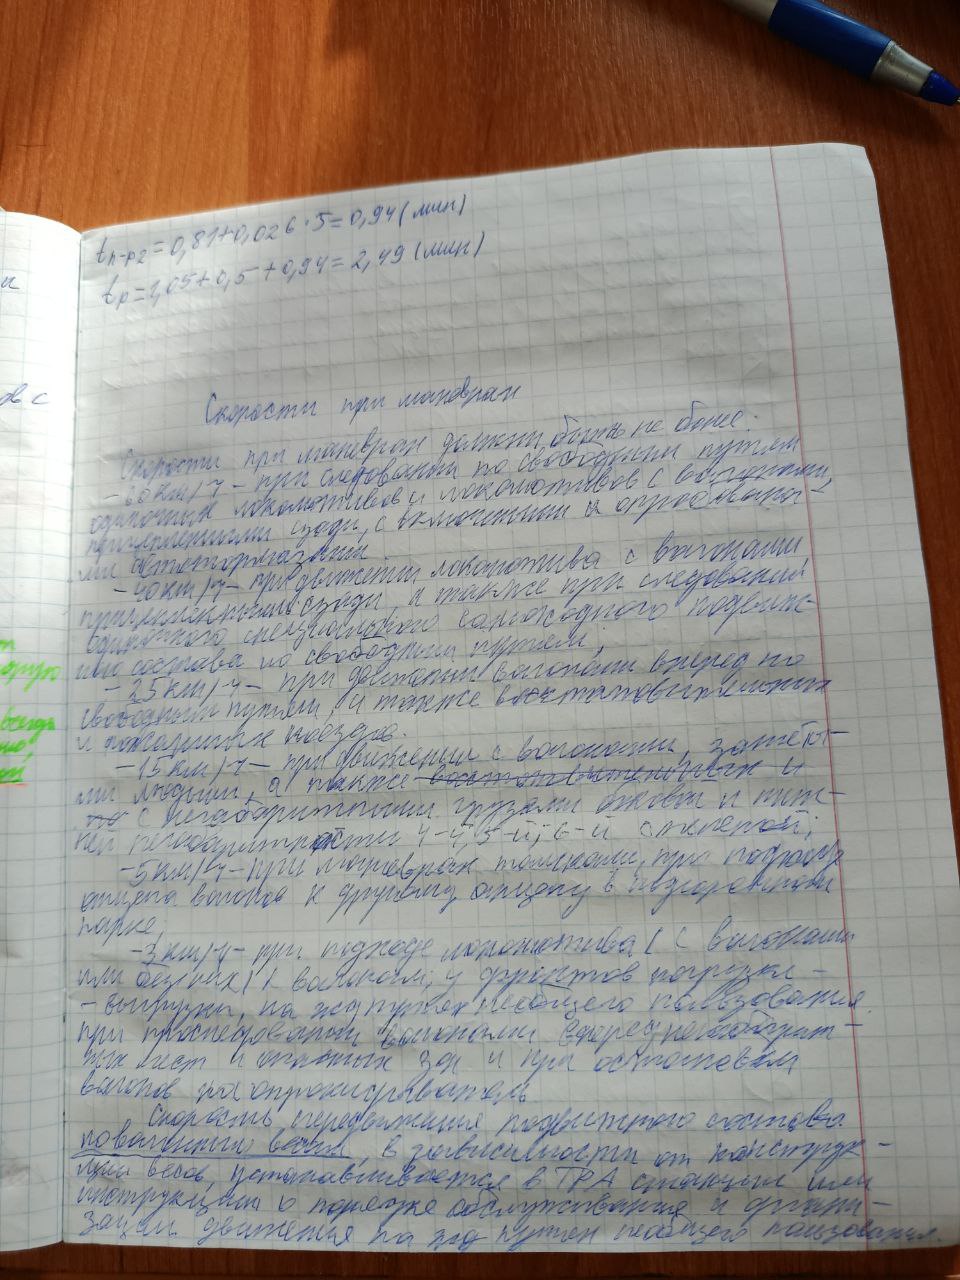 tп-р2=0,81+0,026·5=0,94(мин)
tр=1,05+0,5+0,94=2,49(мин)
Скорости при маневрах
Скорости при маневрах должны быть не более:
-60км/ч- при следовании по свободным путям
одиночных локомотивов и локомотивов с вагонами,
прицепленными сзади, с включенными и опробованны-
ми автотормозами.
-40км/ч- при движении локомотива с вагонами
прицепленными сзади, а также при следовании
одиночного специального самоходного подвиж-
ного состава по свободным путям;
-25км/ч- при движении вагонами вперед по
свободным путям, а также восстановительных
и пожарных поездов.
-15км/ч- при движении с вагонами, заняты-
ми людьми, а также восстановительных и
с негабаритными грузами боковой и ниж-
ней негабаритности 4-й, 5-й, 6-й степеней;
-5км/ч- при маневрах толчками, при подходе
отцепа вагонов к другому отцепу в подгорочном
парке;
-3км/ч- при подходе локомотива (с вагонами
или без них) к вагонам, у фронтов погрузки-
-выгрузки, на жд путях необщего пользования
при проследовании вагонами вперед негабарит-
ных мест и опасных зон и при остановки
вагонов на опрокидыватель.
Скорость передвижения подвижного состава
по вагонным весам, в зависимости от конструк-
ции весов, устанавливается в ТРА станции или
инструкции о порядке обслуживания и органи-
зации движения на жд путях необщего пользования.
ов с